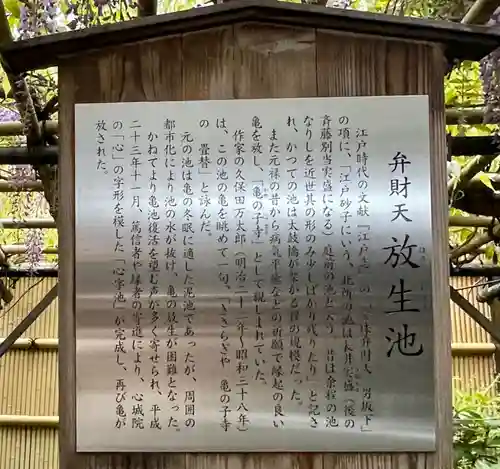 弁財天 放生池
江戸時代の文献『江戸志』の「三体弁財天 男坂下」
の項に、「江戸砂子にいう、此所の池は長井実盛(後の
斉藤別当実盛になる)庭前の池と云、昔は余程の池
なりしを近世其の形のみ少しばかり残りたり」と記さ
れ、かつての池は太鼓橋が架かる程の規模だった。
また元禄の昔から病気平癒などの祈願で縁起の良い
亀を放し、「亀の子寺」として親しまれていた。
作家の久保田万太郎(明治二十二年〜昭和三十八年)
は、この池の亀を眺めて一句。「きさらぎや 亀の子寺
の 畳替」と詠んだ。
元の池は亀の冬眠に適した泥池であったが、周囲の
都市化により池の水が抜け、亀の放生が困難となった。
かねてより亀池復活を望む声が多く寄せられ、平成
二十三年十一月、篤信者や縁者の寄進により、心城院
の「心」の字形を模した「心字池」が完成し、再び亀が
放された。